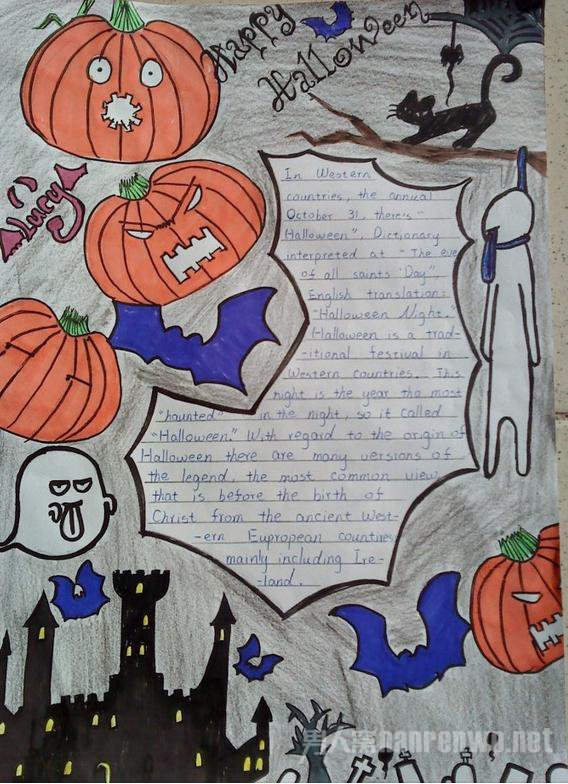 Happy
Halloween
Lucy
In Western
countries, the annual
October 31, there's "
Halloween", Dictionary
interpreted at "The eve
of all saints 'Day".
English translation:
"Halloween Night."
Halloween is a trad-
-itional festival in
Western countries. This
night is the year the most
"haunted" in the night, so it called
"Halloween." With regard to the origin of
Halloween there are many versions of
the legend, the most common view
that is before the birth of
Christ from the ancient West-
-ern Eupropean countires
mainly including Ire-
-land.
男人窝nanrenwo.net